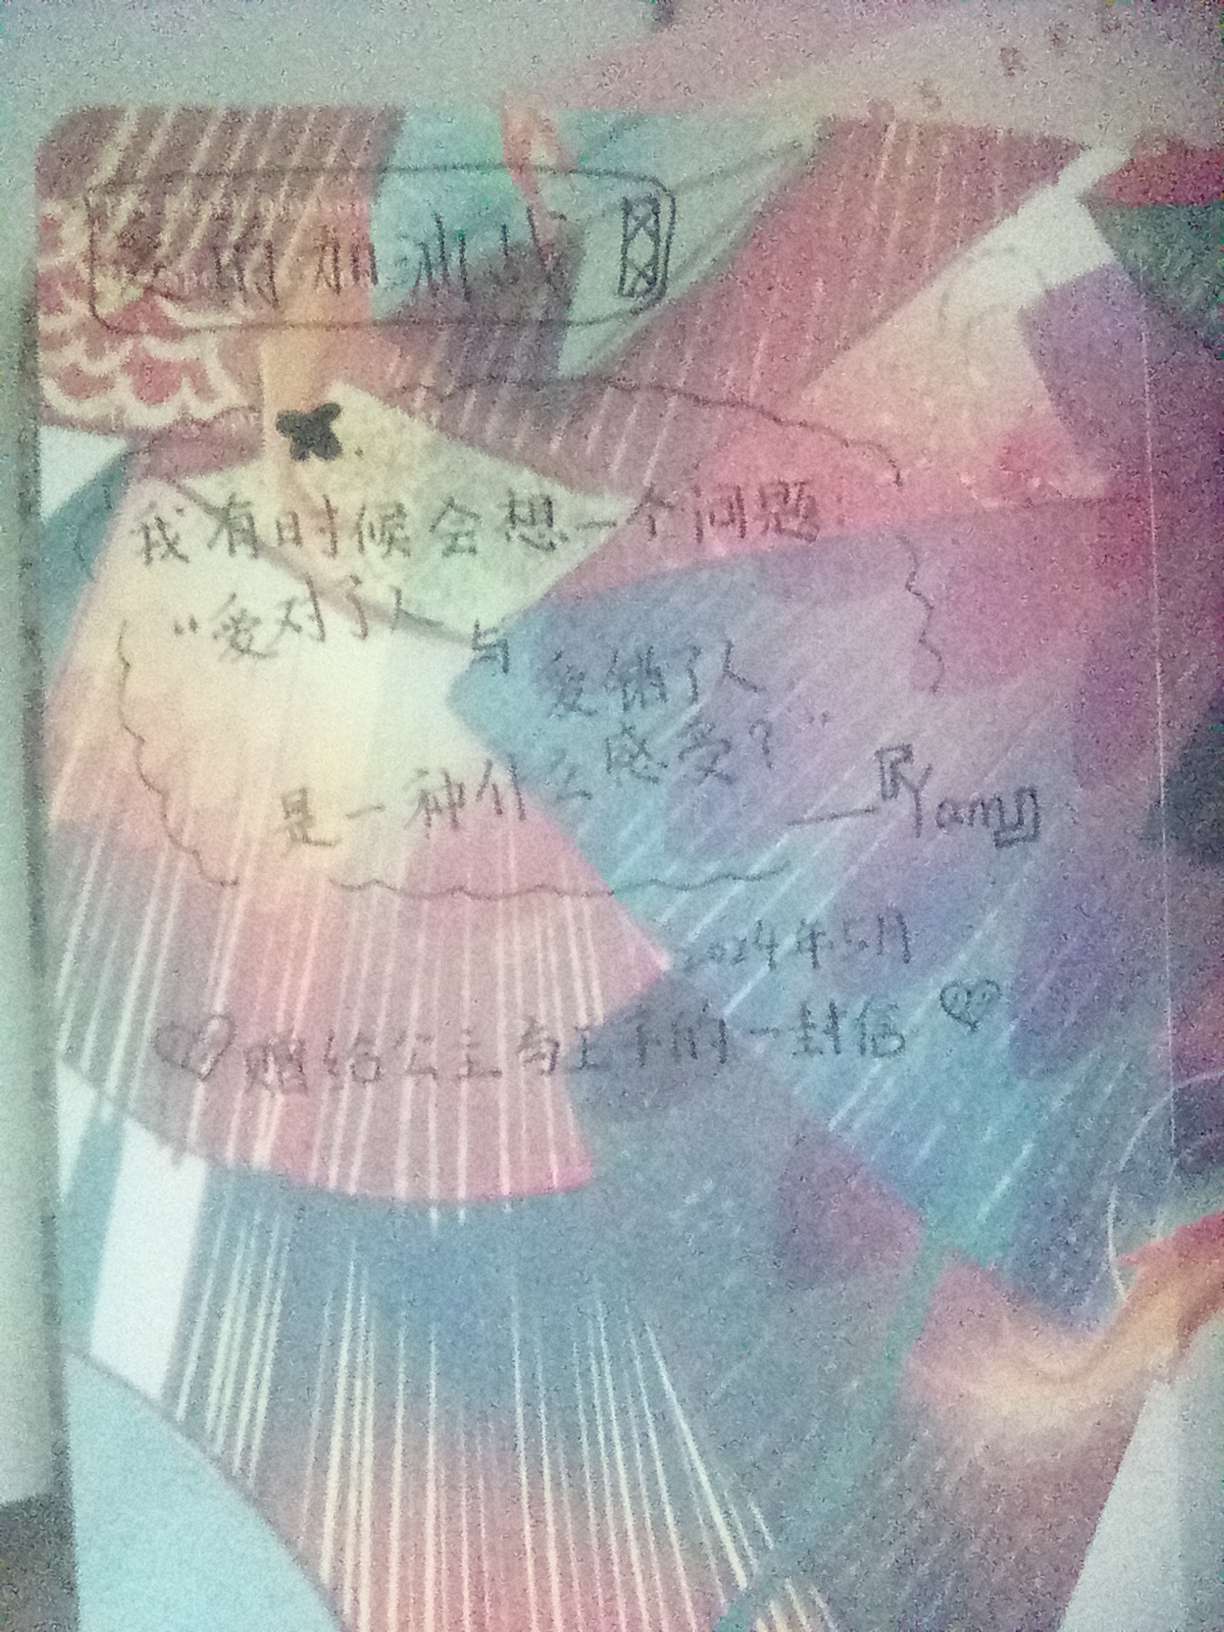 爱的加测战
我有时候会想一个问题
“爱对了人
与
爱错了人
是一种什么感受？”
——『Yang』
2024年5月
赠给公主与王子的一封信